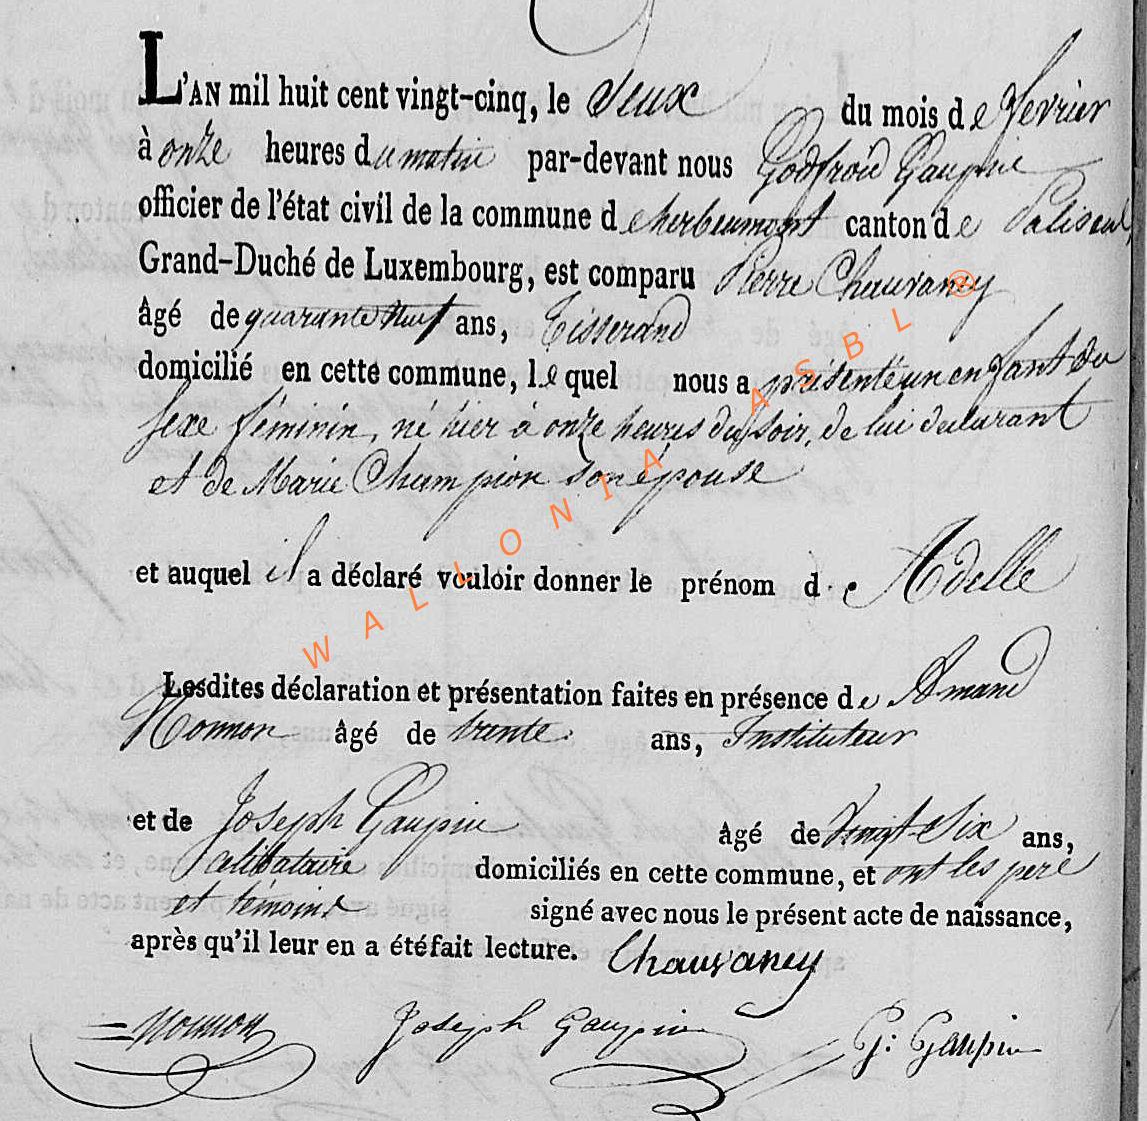 L'AN mil huit cent vingt-cinq, le deux du mois de fevrier
à onze heures du matin par-devant nous Godfroid Gaupin
officier de l'état civil de la commune d'herbeumont canton de Paliseul,
Grand-Duché de Luxembourg, est comparu Pierre Chauvancy
âgé de quarante neuf ans, Tisserand
domicilié en cette commune, lequel nous a présenté un enfant du
sexe féminin, né hier à onze heures du soir, de lui déclarant
et de Marie Champion son épouse
et auquel il a déclaré vouloir donner le prénom de Adelle
Lesdites déclaration et présentation faites en présence de Amand
Monnon âgé de trente ans, Instituteur
et de Joseph Gaupin âgé de vingt-six ans,
célibataire domiciliés en cette commune, et ont les pere
et témoins signé avec nous le présent acte de naissance,
après qu'il leur en a été fait lecture. Chauvancy
Monnon Joseph Gaupin G: Gaupin
WALLONIA ASBL ®